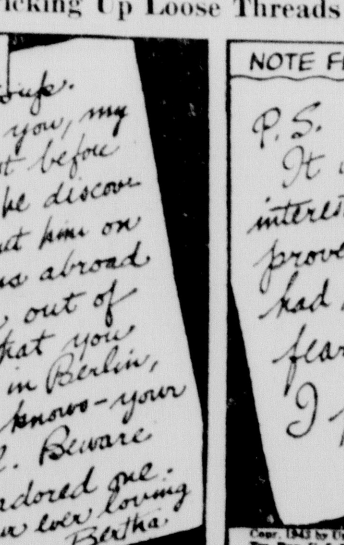 icking Up Loose Threads
you, my
before
he discover
him on
abroad
out of
that you
in Berlin,
knows—your
Beware
adored one.
ever loving
Bertha
NOTE F
P.S.
It
interes
prove
had
fear
I
Copr. 1943 by U